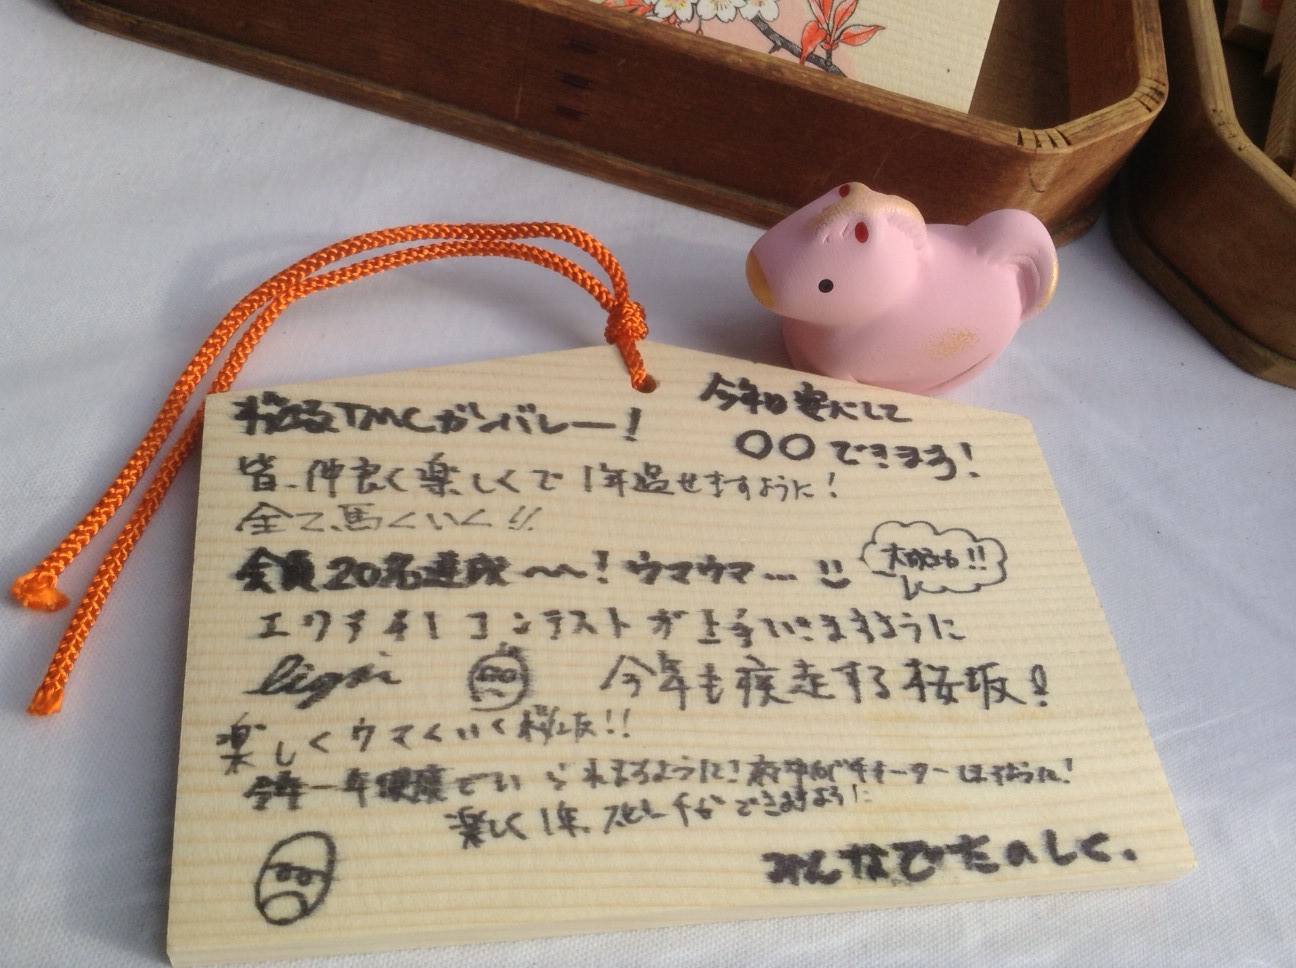 桜坂TMCガンバレー!
今年も安心して
〇〇できます!
皆、仲良く楽しくで1年過せますように!
全て馬くいく!!
会員20名達成~~!ウマウマ…!!
大明神!!
エクササイコンテストが上手いきますように
今年も疾走する桜坂!
楽しくウマくいく桜坂!!
今年一年健康でいられますように!
楽しく1年、スピーチができますように
みんなでたのしく。